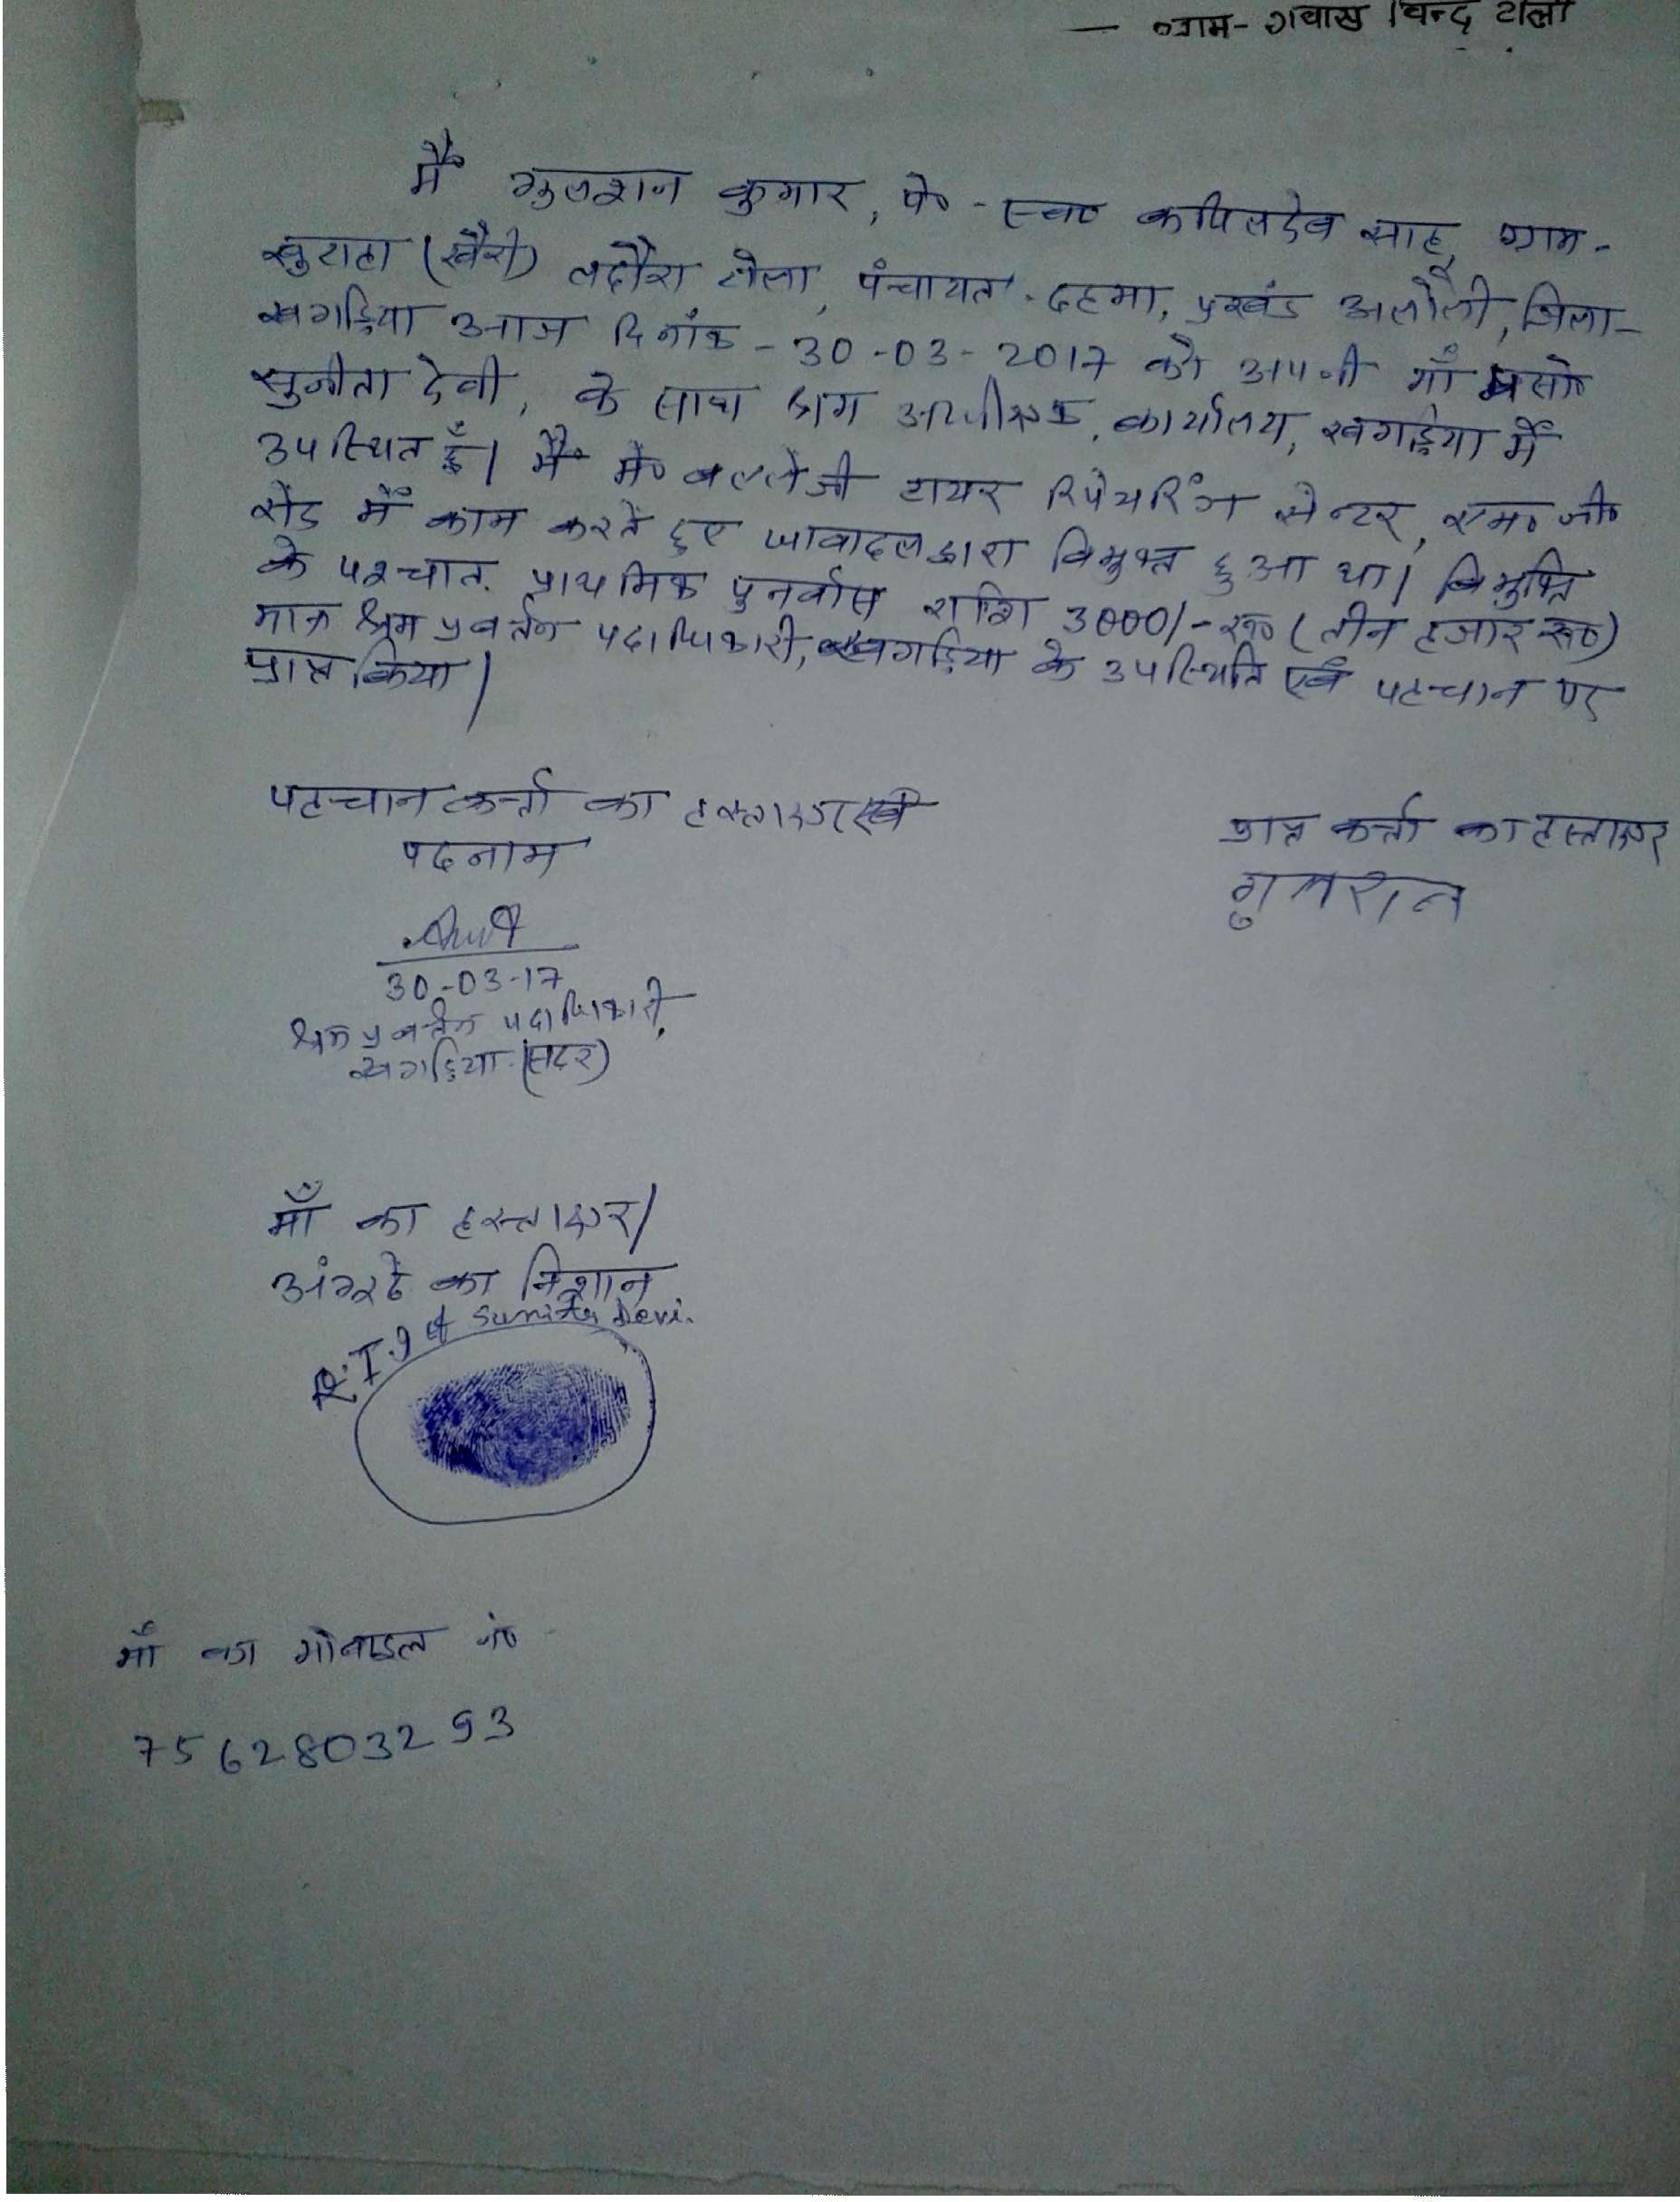 — ग्राम- गवास बिन्द टोली
मैं गुलशन कुमार, पे०- स्व० कपिलदेव साह, ग्राम-
खुटाहा (खैरी) लदौरा टोला, पंचायत- दहमा, प्रखंड अलौली, जिला-
खगड़िया आज दिनांक - 30-03-2017 को अपनी माँ मसो०
सुनीता देवी, के साथ श्रम अधीक्षक, कार्यालय, खगड़िया में
उपस्थित हूँ। मैं मे० बल्लेजी टायर रिपेयरिंग सेन्टर, एम० जी०
रोड में काम करते हुए धावादल द्वारा विमुक्त हुआ था। विमुक्ति
के पश्चात प्राथमिक पुनर्वास राशि 3000/- रू० (तीन हजार रू०)
मात्र श्रम प्रवर्तन पदाधिकारी, खगड़िया के उपस्थिति एवं पहचान पर
प्राप्त किया।
पहचान कर्त्ता का हस्ताक्षर एवं
पदनाम
प्राप्त कर्त्ता का हस्ताक्षर
गुलशन
30-03-17
श्रम प्रवर्तन पदाधिकारी,
खगड़िया (सदर)
माँ का हस्ताक्षर/
अंगूठे का निशान
R.T.I of Sunita Devi.
माँ का मोबाइल नं०
7562803293